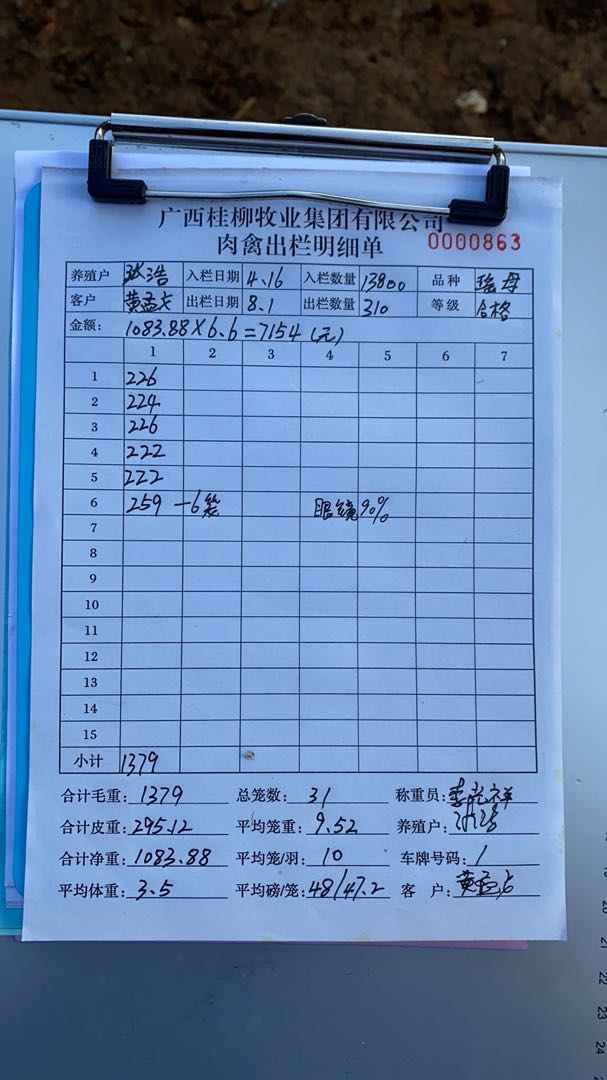 广西桂柳牧业集团有限公司
肉禽出栏明细单 0000863
养殖户 张浩 入栏日期 4.16 入栏数量 13800 品种 瑶母
客户 黄孟 出栏日期 8.1 出栏数量 310 等级 合格
金额: 1083.88×6.6=7154(元)
1 2 3 4 5 6 7
1 226
2 224
3 226
4 222
5 222
6 259 -6笼 眼镜90%
7
8
9
10
11
12
13
14
15
小计 1379
合计毛重: 1379 总笼数: 31 称重员:
合计皮重: 295.12 平均笼重: 9.52 养殖户:
合计净重: 1083.88 平均笼/羽: 10 车牌号码: /
平均体重: 3.5 平均磅/笼: 48/47.2 客 户: 黄孟
21
22
23
24